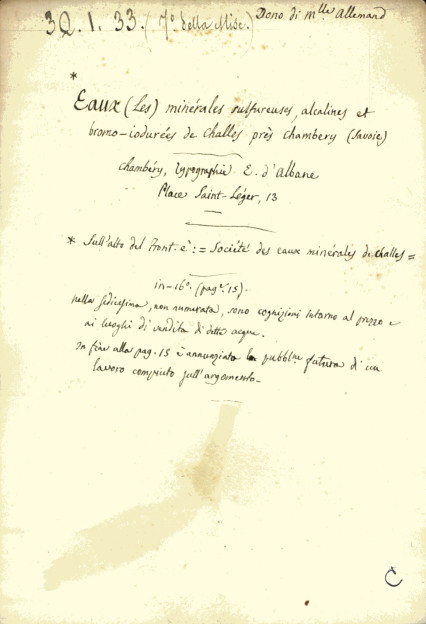 3Q. 1. 33. (7º della Misc.) Dono di Mlle Allemand
*
Eaux (Les) minérales sulfureuses, alcalines et
bromo-iodurées de Challes près Chambery (Savoie)
Chambéry, Typographie E. d'Albane
Place Saint-Léger, 13
* Sull'alto del Front. è: = Société des eaux minérales de Challes =
in-16º. (pag. 15).
Nella sedicesima, non numerata, sono cognizioni intorno al prezzo e
ai luoghi di vendita di dette acque.
In fine alla pag. 15 è annunziata la pubblne futura di un
lavoro compiuto sull'argomento.
C